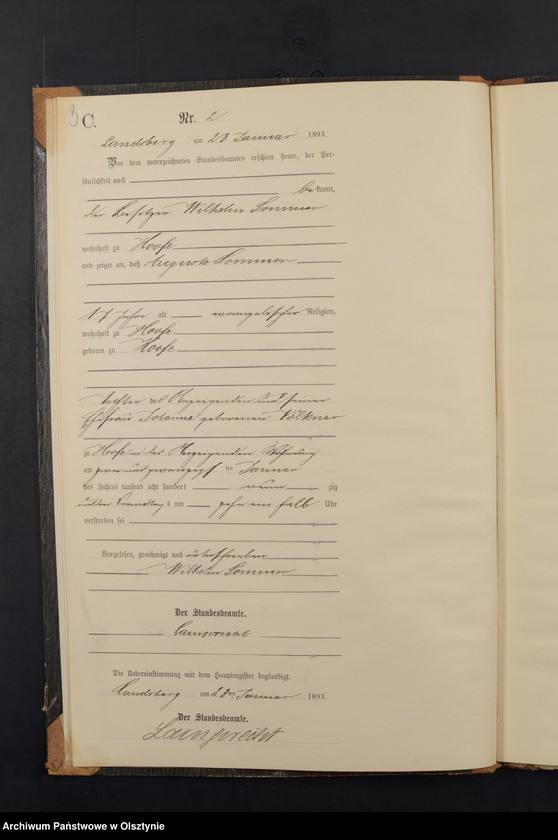 3 C.
Nr. 2
Landsberg am 23 Januar 1893.
Vor dem unterzeichneten Standesbeamten erschien heute, der Per-
sönlichkeit nach
bekannt,
der Besitzer Wilhelm Sommer
wohnhaft zu Hoofe
und zeigte an, daß Auguste Sommer
17 Jahre alt evangelischer Religion,
wohnhaft zu Hoofe
geboren zu Hoofe
Tochter des Anzeigenden und seiner
Ehefrau geborenen
zu Hoofe in des Anzeigenden Wohnung
am zwei und zwanzigsten Januar
des Jahres tausend acht hundert neun zig
und drei um zehn ein halb Uhr
verstorben sei
Vorgelesen, genehmigt und unterschrieben
Wilhelm Sommer
Der Standesbeamte.
Lamprecht
Die Uebereinstimmung mit dem Hauptregister beglaubigt.
Landsberg am Januar 1893.
Der Standesbeamte.
Lamprecht
Archiwum Państwowe w Olsztynie